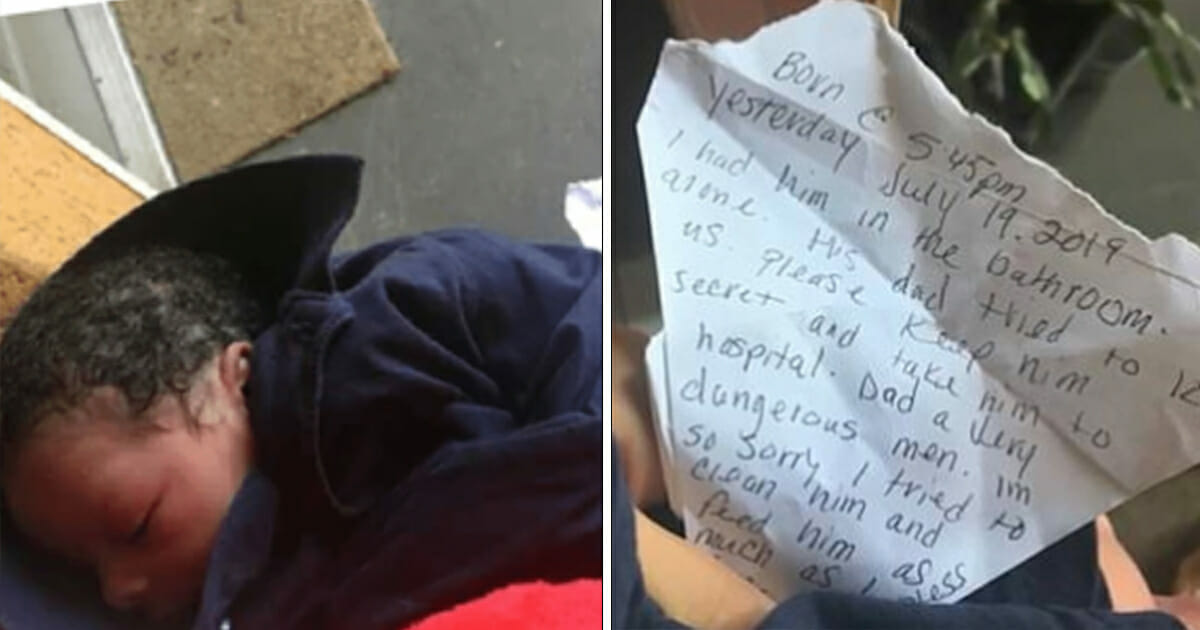 Born @ 545pm
Yesterday July 19. 2019
I had him in the bathroom.
alone. His dad tried to
us. please keep him
secret and take him to
hospital. Dad a very
dungerous men. Im
so sorry I tried to
clean him and
feed him as
much as I